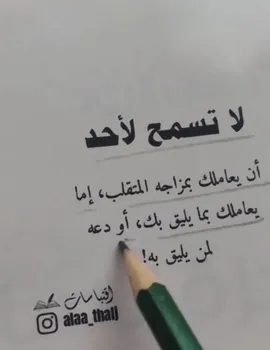 لا تسمح لأحد
أن يعاملك بمزاجه المتقلب، إما
يعاملك بما يليق بك، أو دعه
لمن يليق به!
اقتباسات
alaa_thall